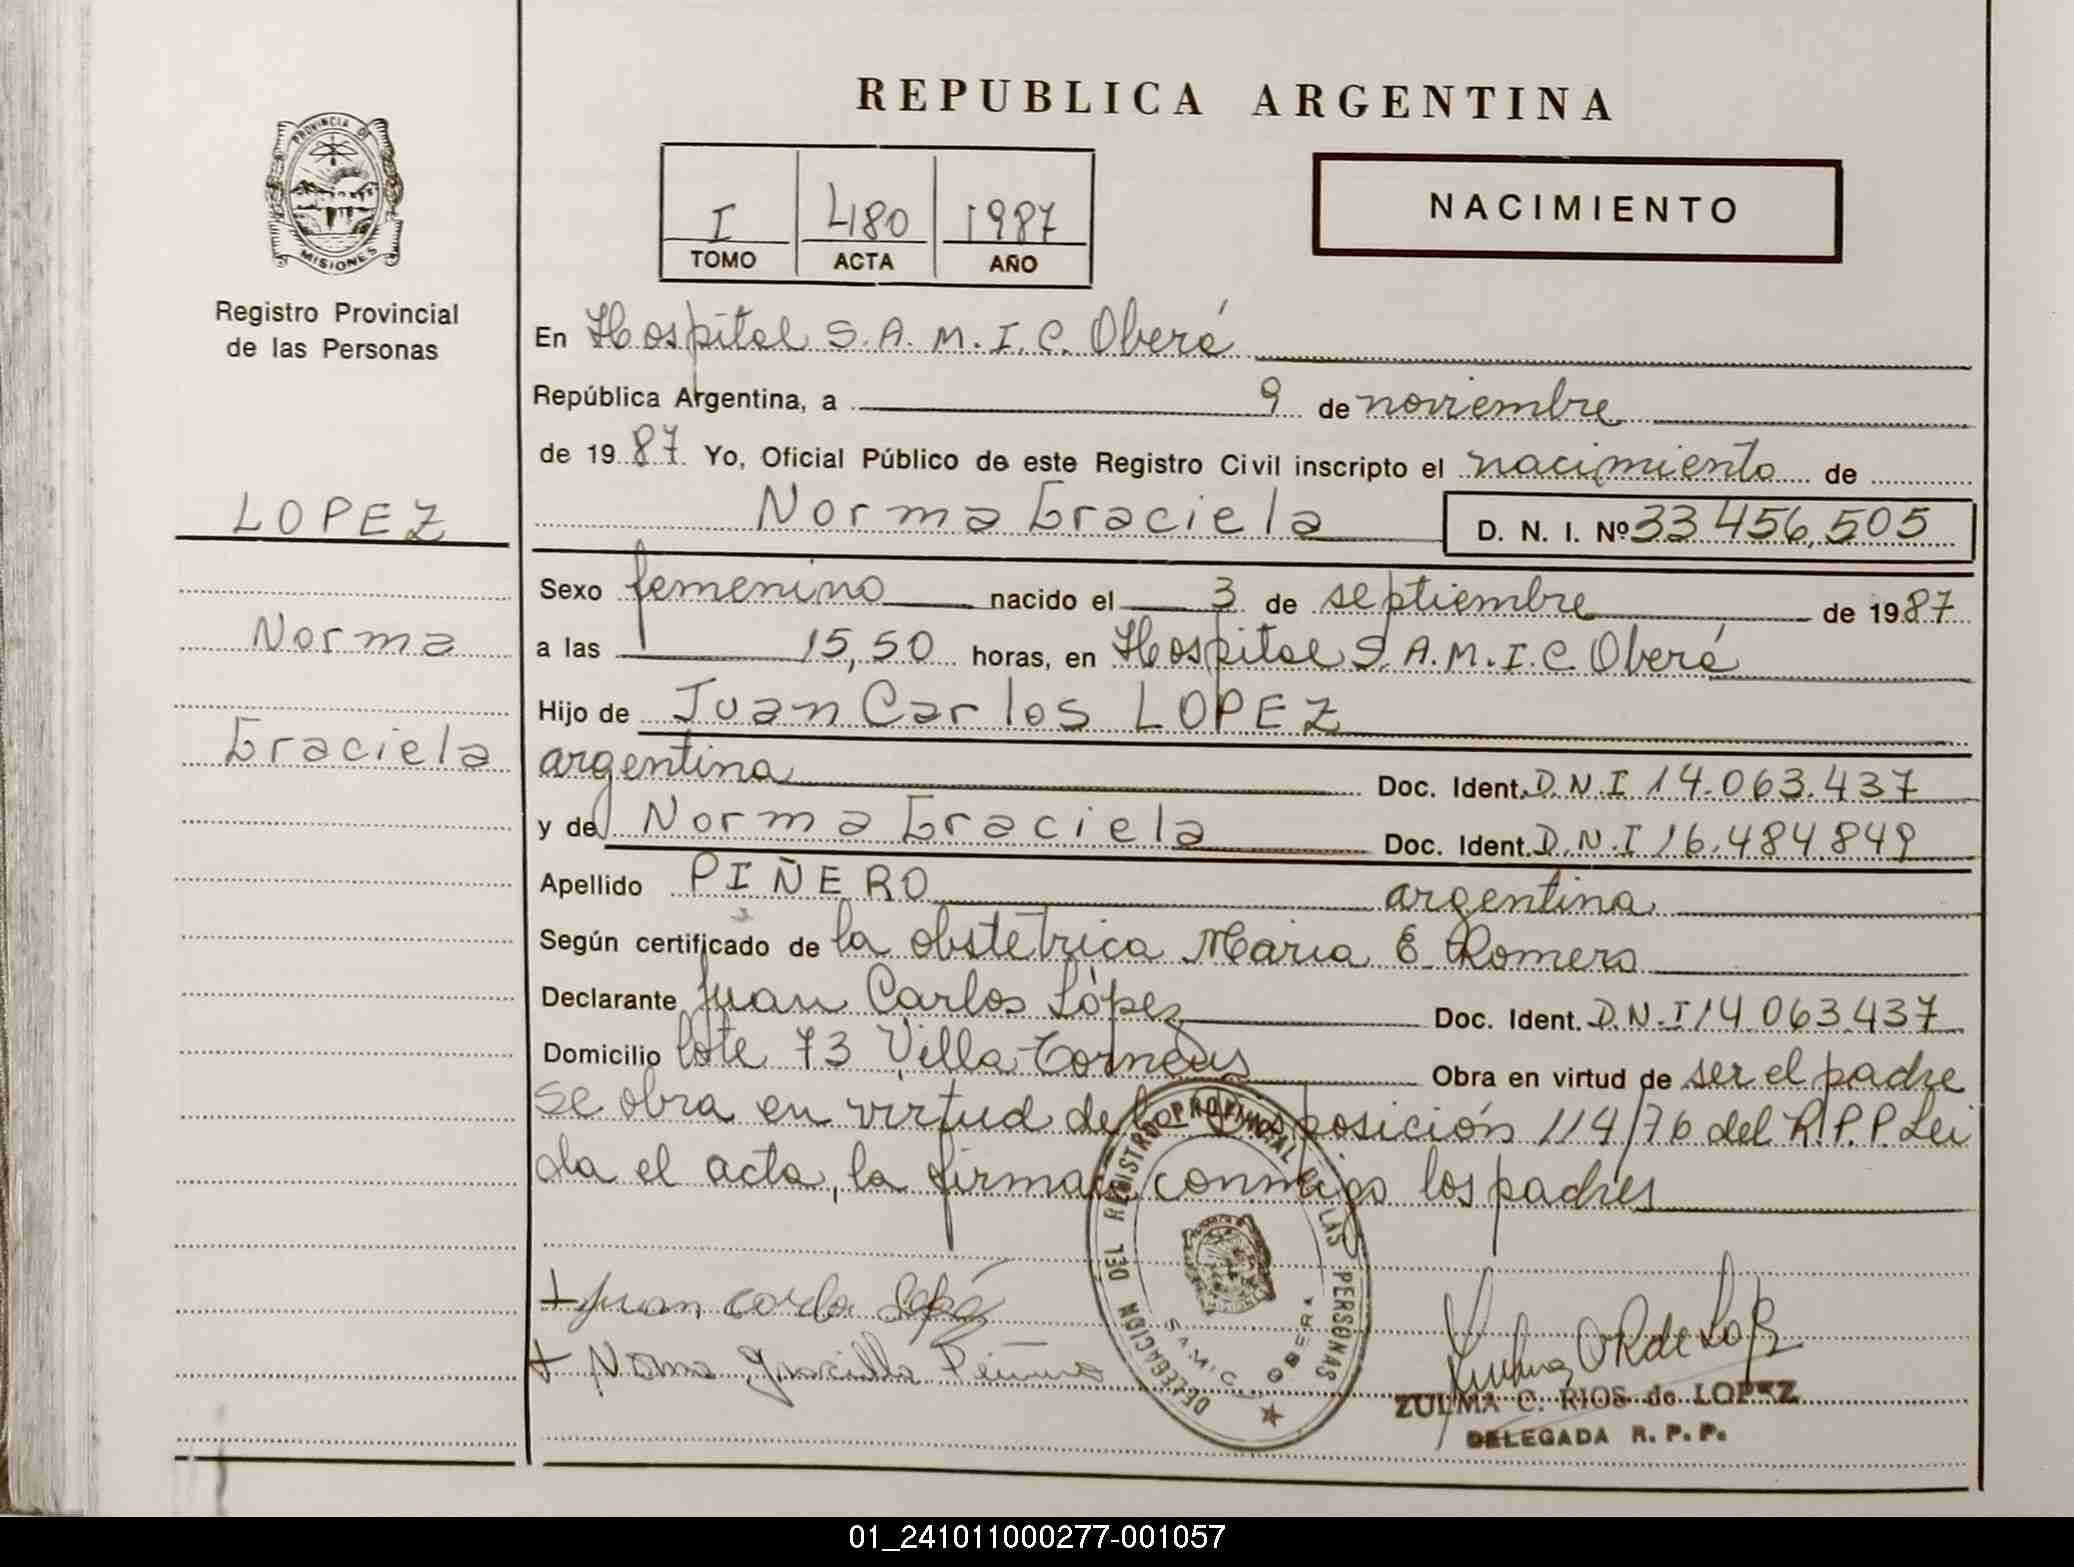 REPUBLICA ARGENTINA
PROVINCIA DE
MISIONES
Registro Provincial
de las Personas
I 480 1987
TOMO ACTA AÑO
NACIMIENTO
En Hospital S.A.M.I.C. Oberá
República Argentina, a 9 de noviembre
de 1987 Yo, Oficial Público de este Registro Civil inscripto el nacimiento de
LOPEZ
Norma Graciela D. N. I. Nº 33.456.505
Sexo femenino nacido el 3 de septiembre de 1987
Norma
a las 15,50 horas, en Hospital S.A.M.I.C Oberá
Hijo de Juan Carlos LOPEZ
Graciela
argentina Doc. Ident. D.N.I 14.063.437
y de Norma Graciela Doc. Ident. D.N.I 16.484.849
Apellido PIÑERO argentina
Según certificado de la obstetrica Maria E Romero
Declarante Juan Carlos López Doc. Ident. D.N.I 14.063.437
Domicilio lote 73 Villa Obra en virtud de ser el padre
se obra en virtud de la Disposición 114/76 del R.P.P. Lei
da el acta, la firman conmigo los padres
+ Juan Carlos López
+ Norma Piñero
DELEGACION DEL REGISTRO PROVINCIAL DE LAS PERSONAS
SAMIC OBERA
ZULMA C. RIOS de LOPEZ
DELEGADA R. P. P.
01_241011000277-001057